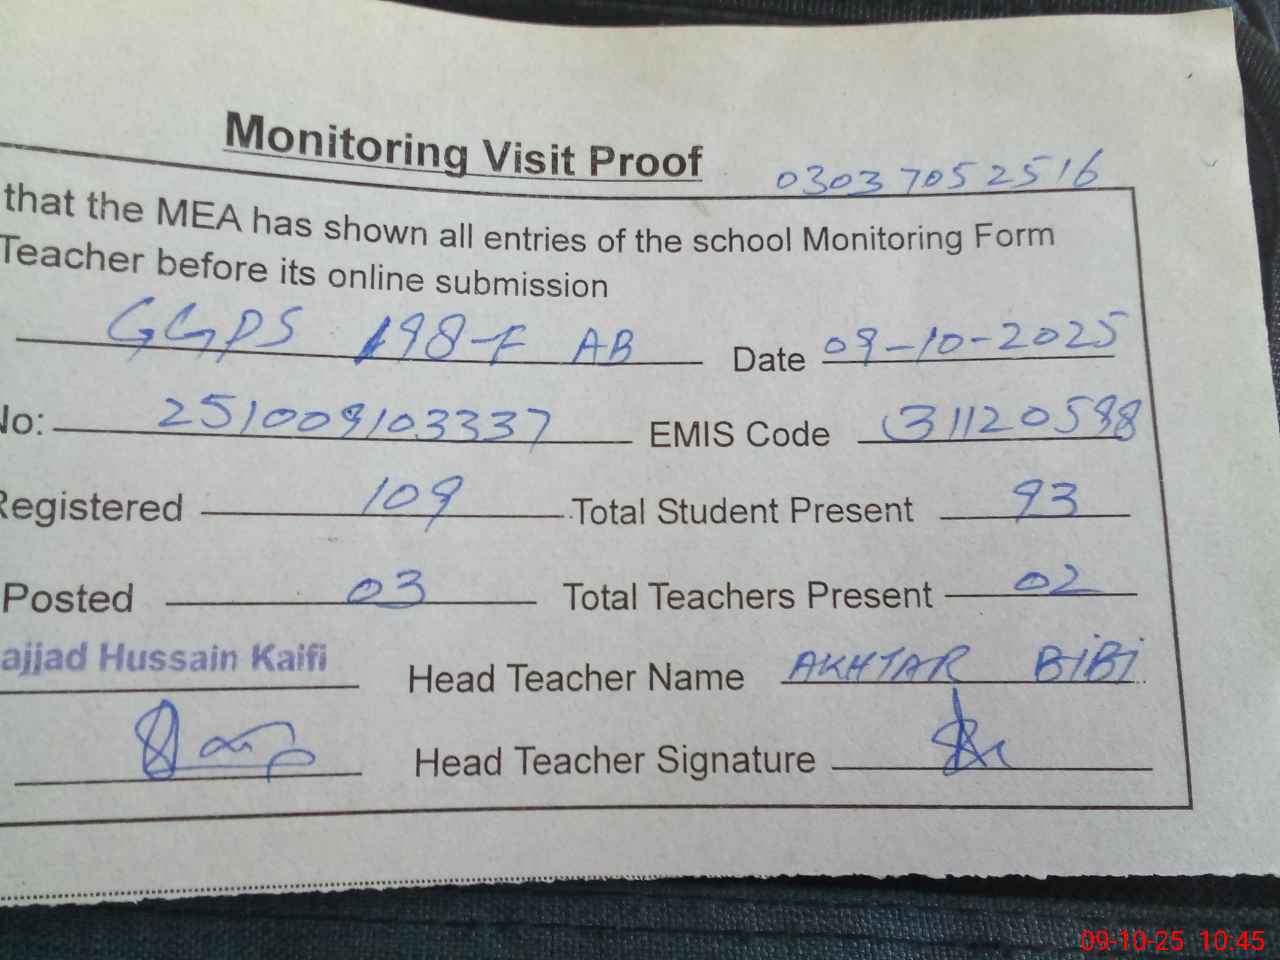 Monitoring Visit Proof
03037052516
that the MEA has shown all entries of the school Monitoring Form
Teacher before its online submission
GGPS 198-F AB Date 09-10-2025
No: 251009103337 EMIS Code 31120598
Registered 109 Total Student Present 93
Posted 03 Total Teachers Present 02
ajjad Hussain Kaifi Head Teacher Name AKHTAR BiBi
Head Teacher Signature
09-10-25 10:45